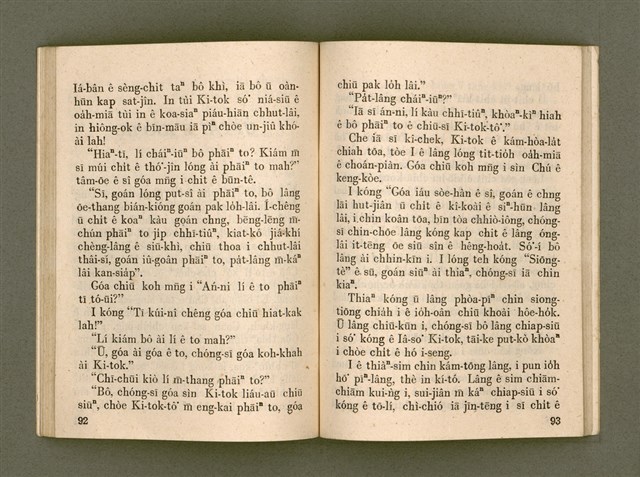 Iá-bân ê sèng-chit taⁿ bô khì, iā bô ū oàn-
hūn kap sat-jîn. In tùi Ki-tok só͘ niá-siū ê
oáh-miā tùi in ê koa-siaⁿ piáu-hiān chhut-lâi,
in hiòng-ok ê bīn-māu iā pìⁿ chòe un-jiû khó-
ài lah!
“Hiaⁿ-tī, lí cháiⁿ-iūⁿ bô phāiⁿ to? Kiám m̄
sī múi chit ê thó͘-jîn lóng ài phāiⁿ to mah?”
tâm-ōe ê sî góa mn̄g i chit ê būn-tê.
“Sī, goán lóng put-sî ài phāiⁿ to, bô lâng
ōe-thang bián-kióng goán pak lóh-lâi. Í-chêng
ū chit ê koaⁿ kàu goán chng, bēng-lēng m̄-
chún phāiⁿ to jip chhī-tiûⁿ, kiat-kó jiá-khí
chèng-lâng ê siū-khì, chiū thoa i chhut-lâi
thâi-sí, goán iû-goân phāiⁿ to, pát-lâng m̄-káⁿ
lâi kan-siáp”.
Góa chiū koh mn̄g i “Án-ni lí ê to phāiⁿ
tī tó-ūi?”
I kóng “Tī kúi-nî chêng góa chiū hiat-kak
lah!”
“Lí kiám bô ài lí ê to mah?”
“Ū, góa ài góa ê to, chóng-sī góa koh-khah
ài Ki-tok.”
“Chī-chūi kiò lí m̄-thang phāiⁿ to?”
“Bô, chóng-sī góa sìn Ki-tok liáu-āu chiū
siūⁿ, chòe Ki-tok-tô͘ m̄ eng-kai phāiⁿ to, góa
92
chiū pak lóh lâi.”
“Pát-lâng cháiⁿ-iūⁿ?”
“Iā sī án-ni, lí kàu chhī-tiûⁿ, khòaⁿ-kìⁿ hiah
ê bô phāiⁿ to ê chiū-sī Ki-tok-tô͘.”
Che iā sī kì-chek, Ki-tok ê kám-hòa-lát
chiah tōa, tòe I ê lâng lóng tit-tióh oáh-miā
ê choán-piàn. Góa chiū koh mn̄g i sìn Chú ê
keng-kòe.
I kóng “Góa iáu sòe-hàn ê sî, goán ê chng
lāi hut-jiân ū chit ê kî-koài ê siⁿ-hūn lâng
lâi, i chin koân tōa, bīn tòa chhiò-iông, chóng-
sī chin-chōe lâng kóng kap chit ê lâng óng-
lâi it-tēng ōe siū sîn ê hêng-hoát. Só͘-í bô
lâng ài chhin-kīn i. I lóng teh kóng “Siōng-
tè” ê sū, goán siūⁿ ài thiaⁿ, chóng-sī iā chin
kiaⁿ.
Thiaⁿ kóng ū lâng phòa-pīⁿ chin siong-
tiōng chiáh i ê ióh-oân chiū khoài hôe-hók.
Ū lâng chiū-kūn i, chóng-sī bô lâng chiap-siū
i só͘ kóng ê Iâ-so͘ Ki-tok, tāi-ke put-kò khòaⁿ
i chòe chit ê hó i-seng.
I ê thiàⁿ-sim chin kám-tōng lâng, i pun ióh
hō͘ pīⁿ-lâng, thè in kí-tó. Lâng ê sim chiām-
chiām kui-ǹg i, sui-jiân m̄ káⁿ chiap-siū i só͘
kóng ê tō-lí, chì-chió iā jīn-tēng i sī chit ê
93